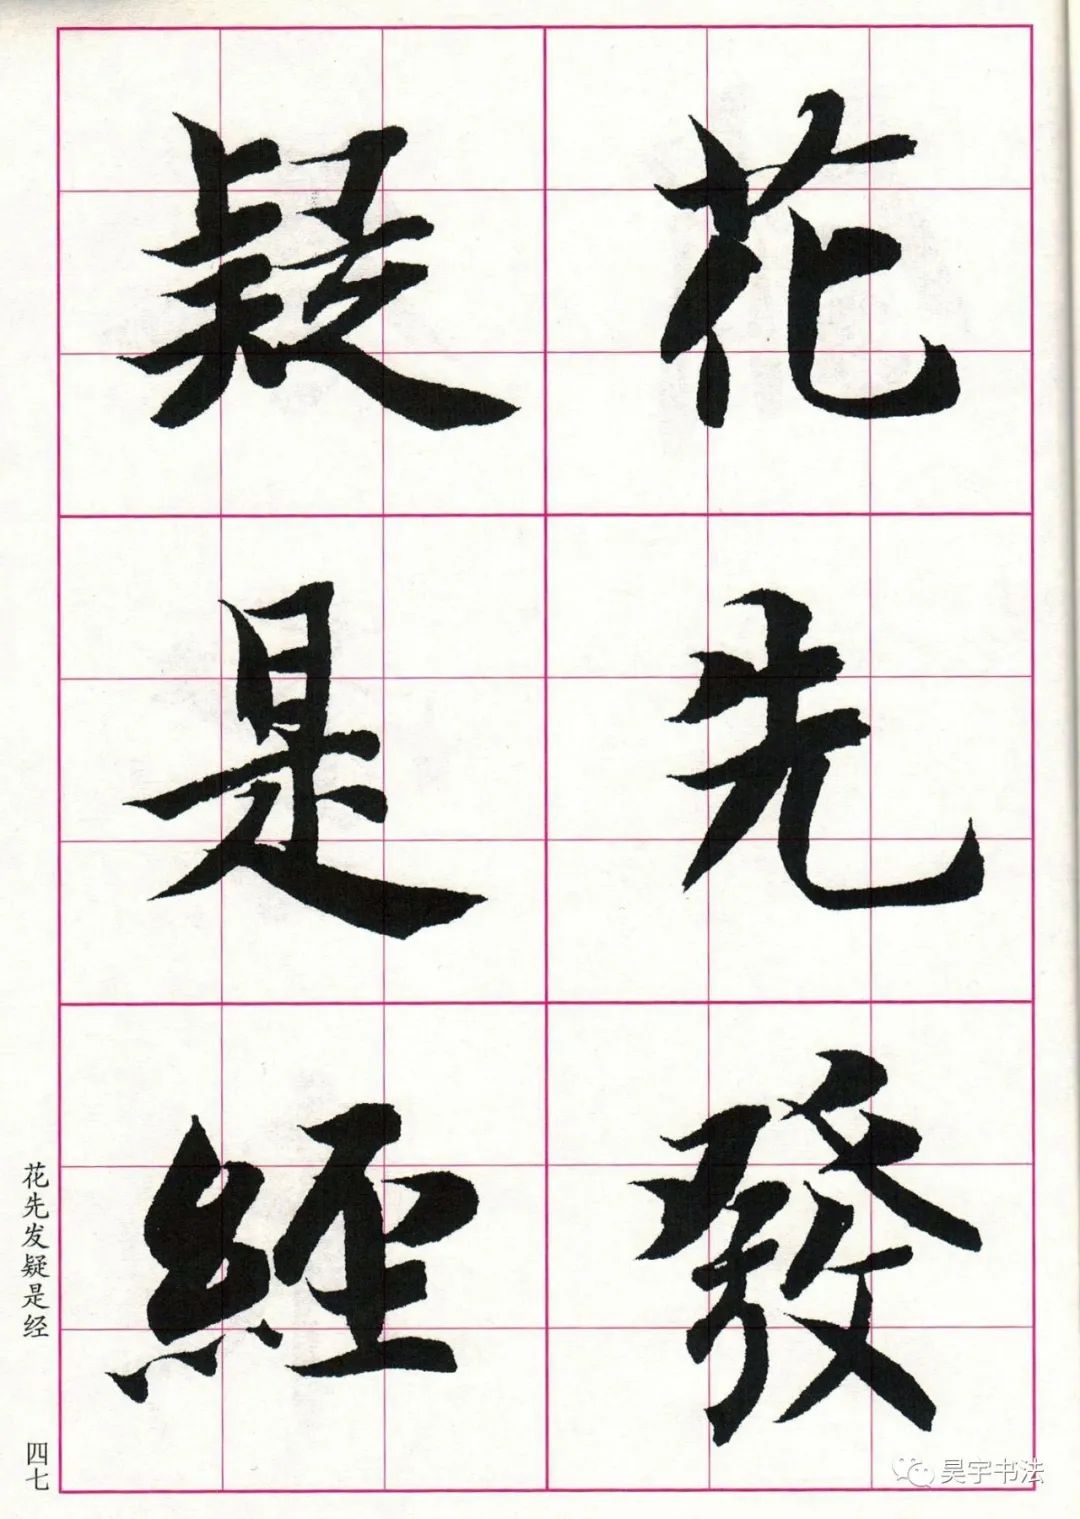 花先發
疑是經
花先发疑是经
四七
昊宇书法